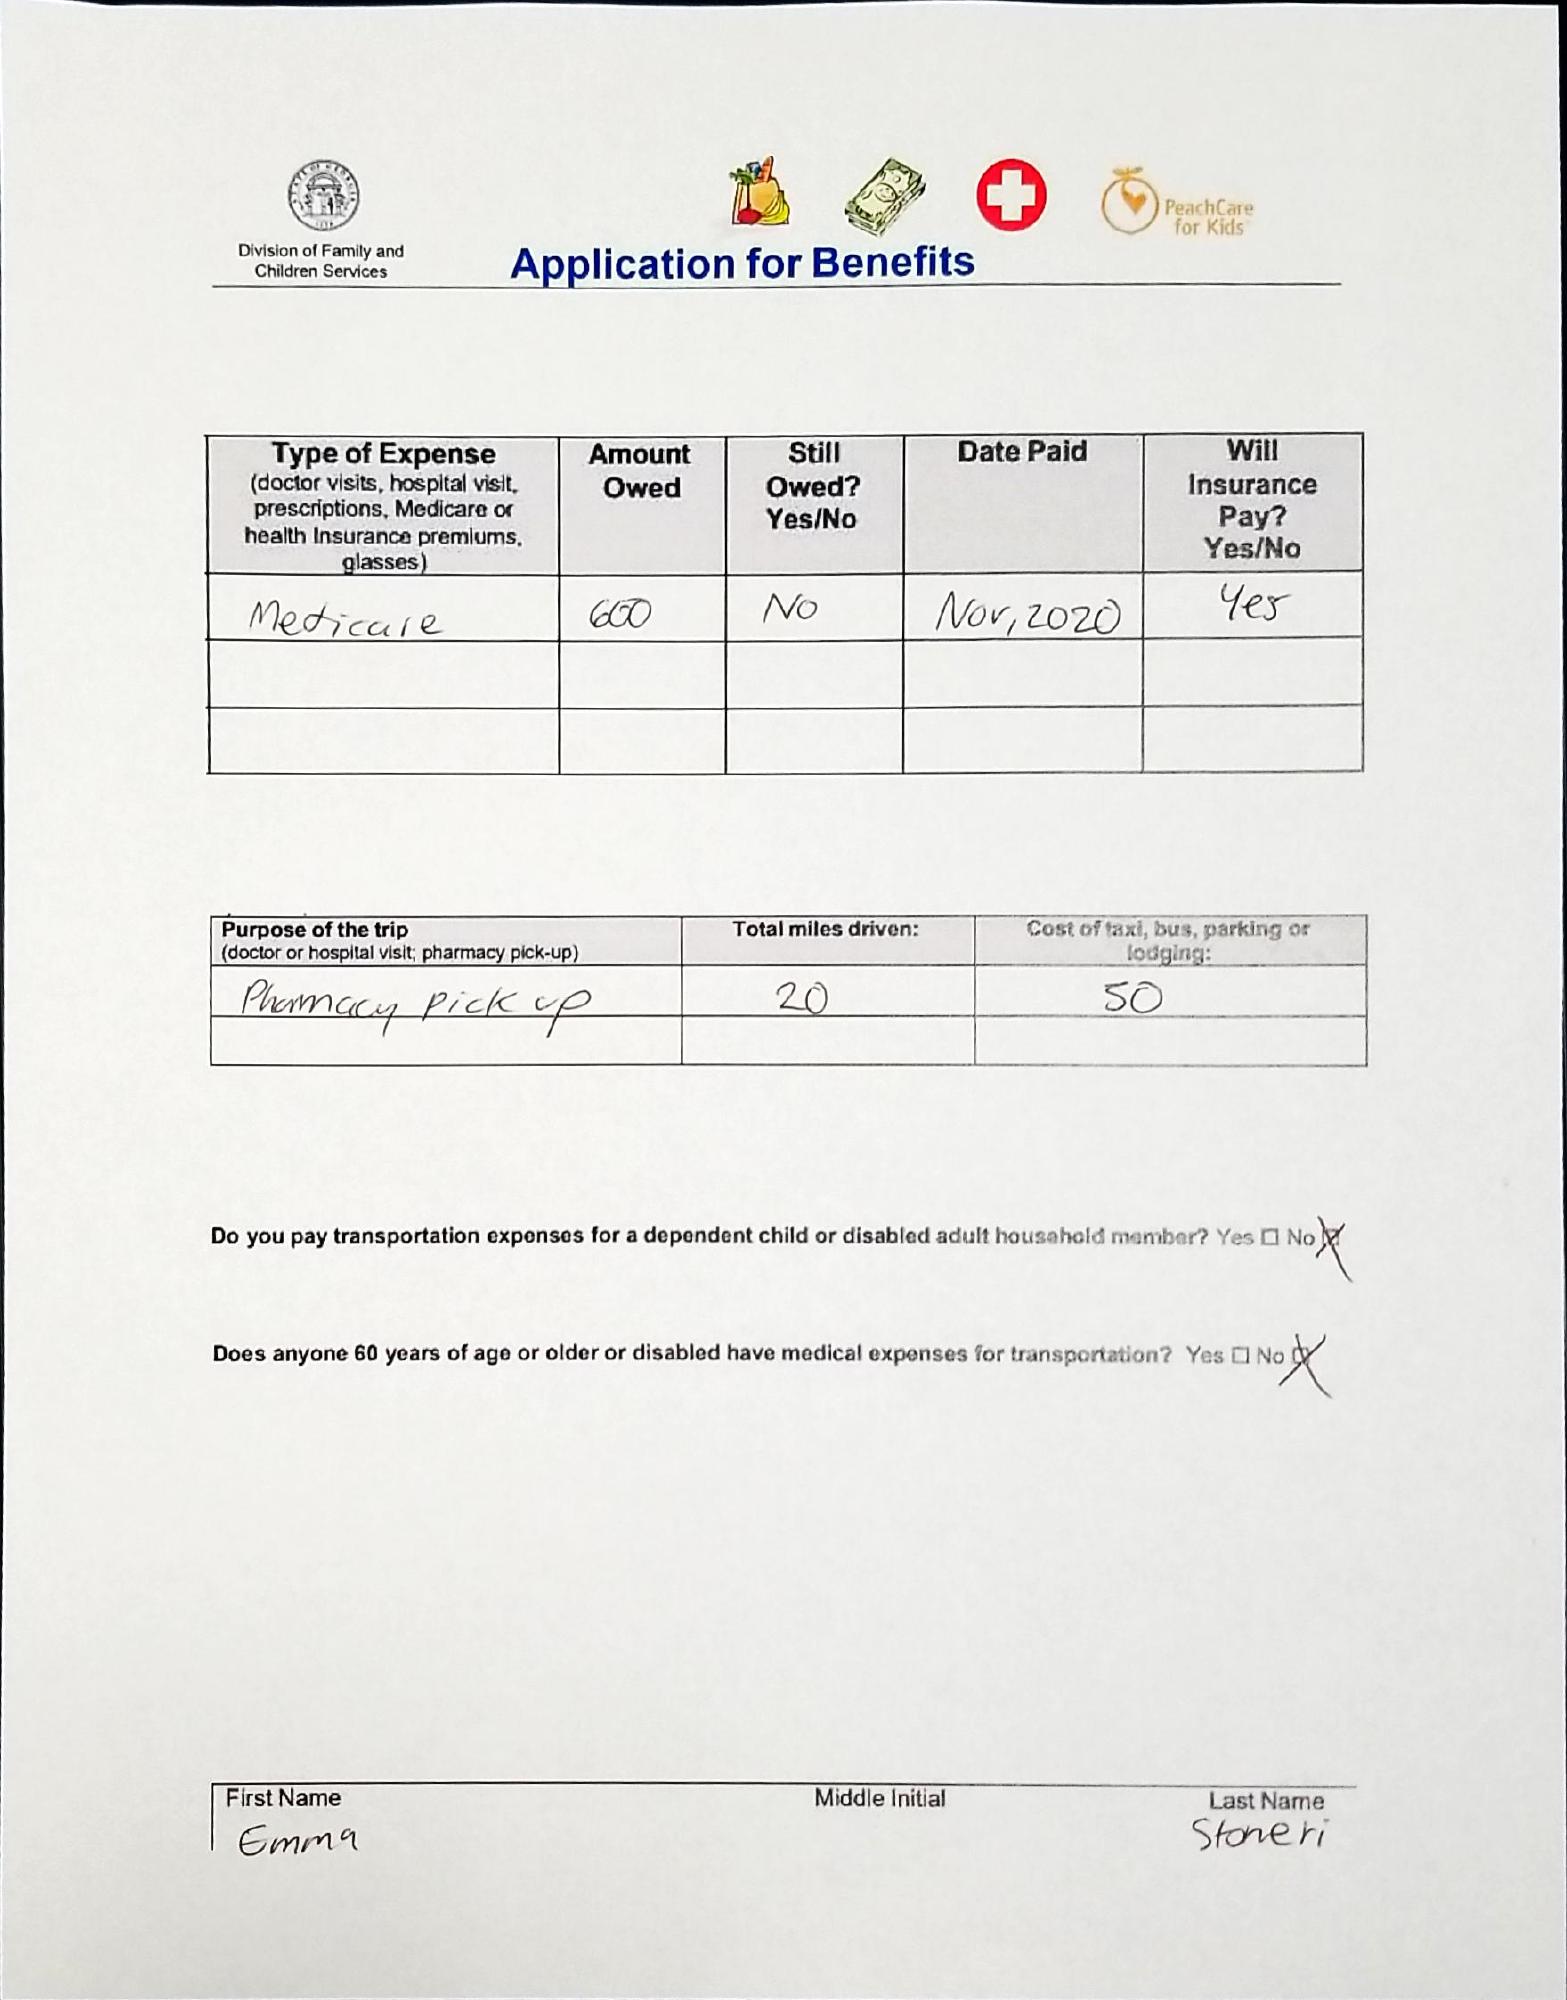 STATE OF GEORGIA
Division of Family and
Children Services
PeachCare
for Kids
Application for Benefits
Type of Expense
(doctor visits, hospital visit,
prescriptions, Medicare or
health Insurance premiums,
glasses)
Amount
Owed
Still
Owed?
Yes/No
Date Paid
Will
Insurance
Pay?
Yes/No
Medicare
600
No
Nov, 2020
Yes
Purpose of the trip
(doctor or hospital visit; pharmacy pick-up)
Total miles driven:
Cost of taxi, bus, parking or
lodging:
Pharmacy pick up
20
50
Do you pay transportation expenses for a dependent child or disabled adult household member? Yes ☐ No ☒
Does anyone 60 years of age or older or disabled have medical expenses for transportation? Yes ☐ No ☒
First Name
Middle Initial
Last Name
Emma
Stoneri